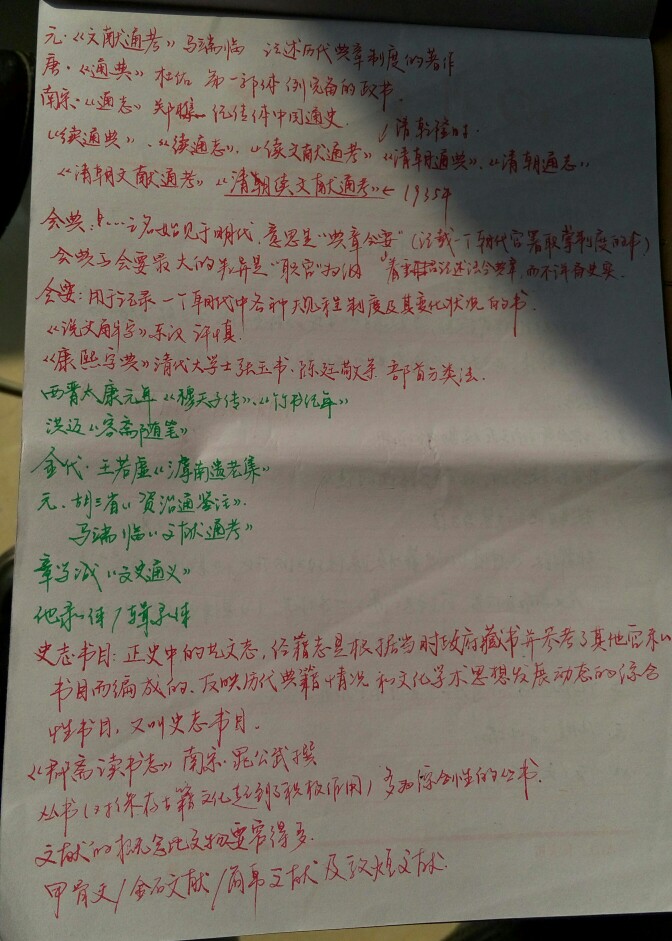 元·《文献通考》马端临 记述历代典章制度的著作
唐·《通典》杜佑 第一部体例完备的政书.
南宋·《通志》郑樵 纪传体中国通史.
清乾隆时.
《续通典》、《续通志》、《续文献通考》《清朝通典》、《清朝通志》
《清朝文献通考》《清朝续文献通考》← 1935年
会典:……之名始见于明代,意思是"典章会要"(记载一个朝代官署职掌制度的书)
会典与会要最大的差异是"职官"为纲 着重记述法令典章,而不详备史实.
会要:用于记录一个朝代中各种大规程制度及其变化状况的书.
《说文解字》东汉 许慎.
《康熙字典》清代大学士张玉书、陈廷敬等 部首分类法.
西晋太康元年《穆天子传》、《竹书纪年》
洪迈《容斋随笔》
金代·王若虚《滹南遗老集》
元·胡三省《资治通鉴注》
马端临《文献通考》
章学诚《文史通义》
他录体/辑录体
史志书目:正史中的艺文志,经籍志是根据当时政府藏书并参考了其他官私
书目而编成的、反映历代典籍情况和文化学术思想发展动态的综合
性书目,又叫史志书目.
《郡斋读书志》南宋·晁公武撰
丛书(对保存古籍文化起到了积极作用)多为综合性的丛书.
文献的概念比文物要窄得多.
甲骨文/金石文献/简帛文献及敦煌文献.